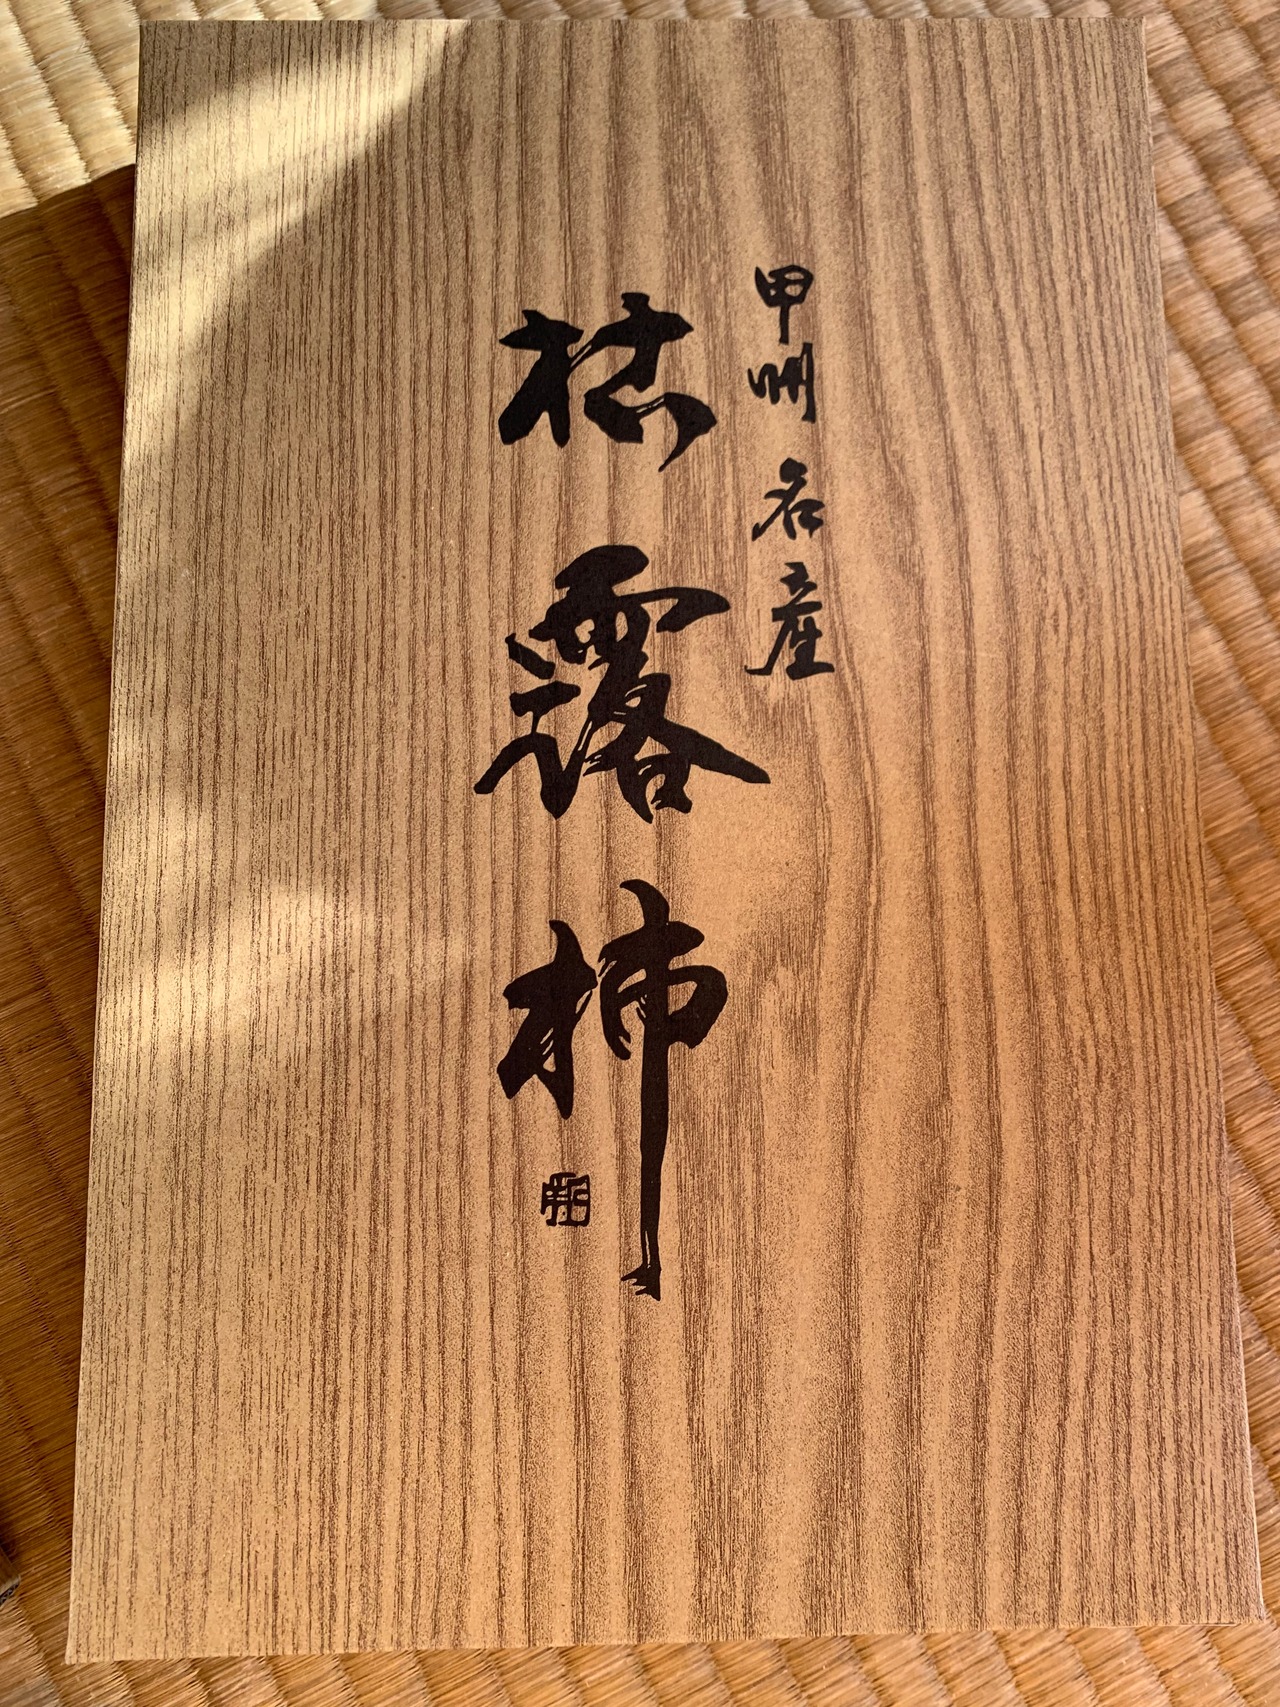 甲州名産
枯露柿